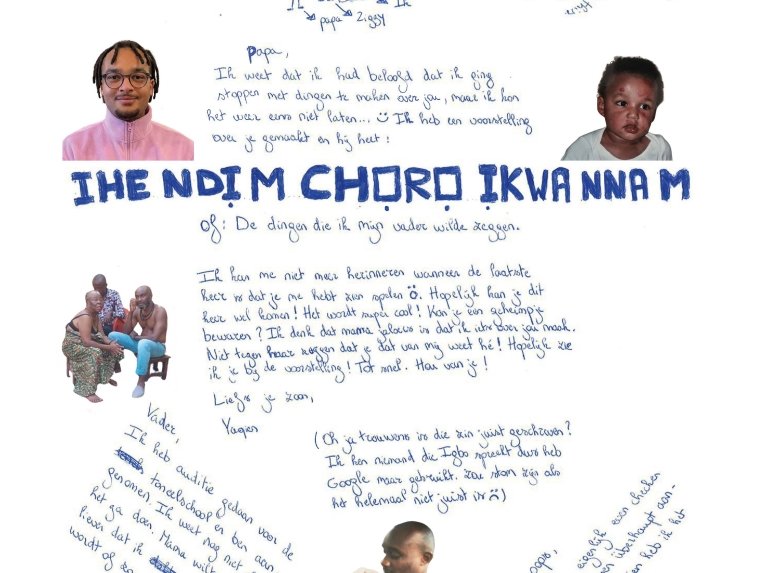 papa
Ziggy
Ik
Papa,
Ik weet dat ik had beloofd dat ik ging
stoppen met dingen te maken over jou, maar ik kon
het weer eens niet laten... Ik heb een voorstelling
over je gemaakt en hij heet:
IHE NDỊ M CHỌRỌ ỊKWA NNA M
Of: De dingen die ik mijn vader wilde zeggen.
Ik kan me niet meer herinneren wanneer de laatste
keer is dat je me hebt zien spelen. Hopelijk kan je dit
keer wel komen! Het wordt super cool! Kan je een geheimpje
bewaren? Ik denk dat mama jaloers is dat ik iets over jou maak.
Niet tegen haar zeggen dat je dat van mij weet hé! Hopelijk zie
ik je bij de voorstelling! Tot snel. Hou van je!
Liefs je zoon,
(Oh ja trouwens is die zin juist geschreven?
Ik ken niemand die Igbo spreekt dus heb
Google maar gebruikt. Zou stom zijn als
het helemaal niet juist is)
Vader,
Ik heb auditie gedaan voor de
toneelschool en ben aan-
genomen. Ik weet nog niet
het ga doen. Mama wilt
liever dat ik
wordt of
papa,
eigenlijk even checken
überhaupt aan-
heb ik het